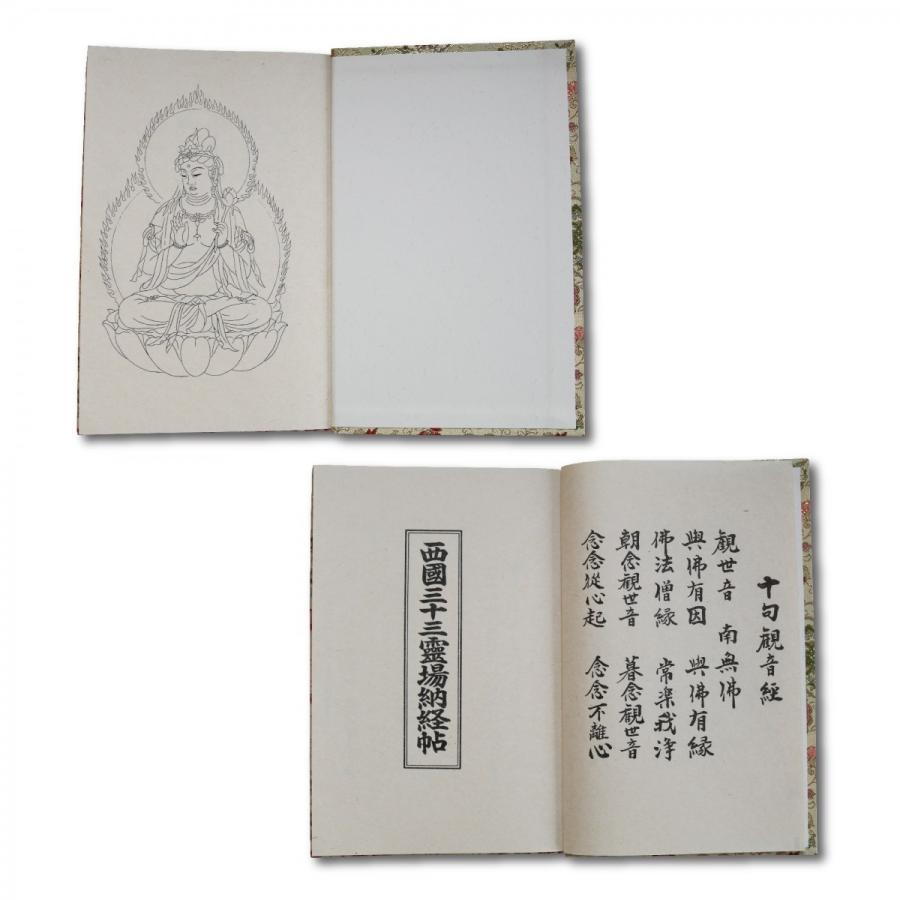 十句観音經
観世音 南無佛
與佛有因 與佛有縁
佛法僧縁 常楽我浄
朝念観世音 暮念観世音
念念從心起 念念不離心
西國三十三靈場納経帖